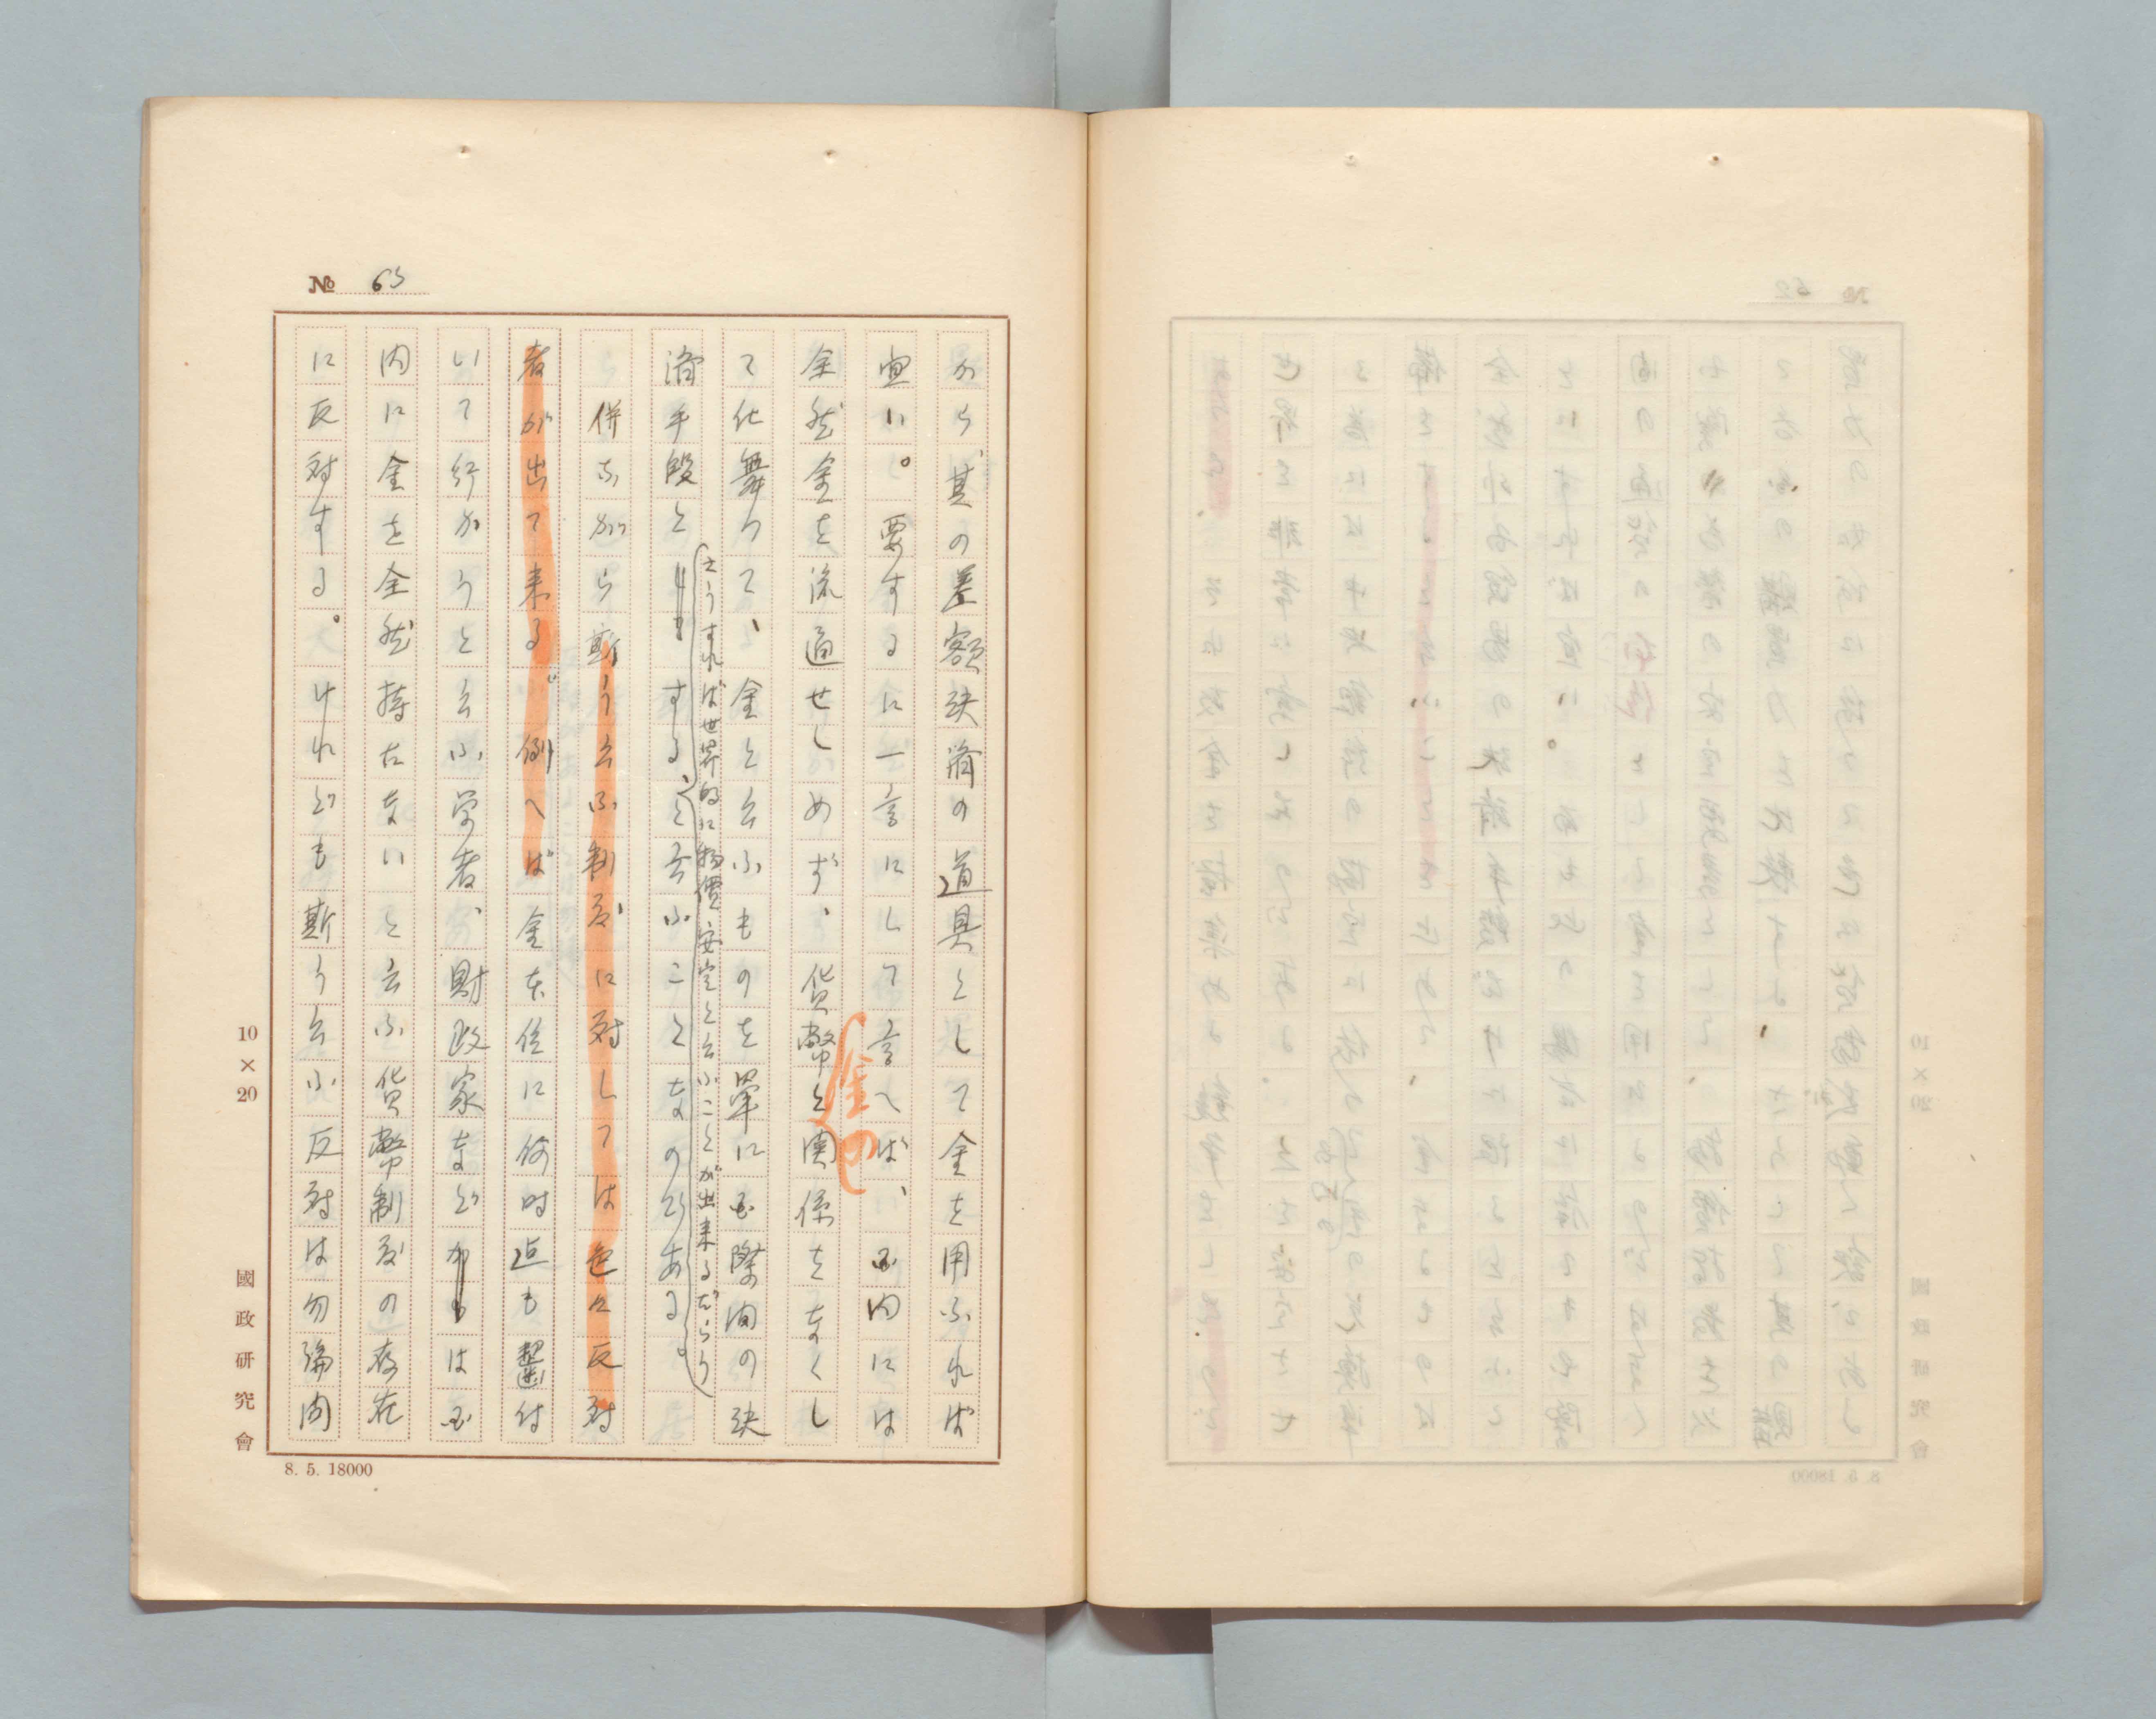 № 63
から、其の差額決済の道具として金を用ふれば
宜い。要するに一言にして言へば、国内には
全然金を流通せしめず、貨幣と関係をなくし
金の
て仕舞つて、金と云ふものを単に国際間の決
済手段とする、と云ふことなのである。
さうすれば世界的に物價安定と云ふことが出来るだらう
併しながら斯う云ふ制度に対しては色々反対
者が出て来る。例へば金本位に何時迄も齧付
いて行かうと云ふ学者、財政家などは国
内に金を全然持たないと云ふ貨幣制度の存在
に反対する。けれども斯う云ふ反対は勿論問
10×20
國政研究會
8. 5. 18000